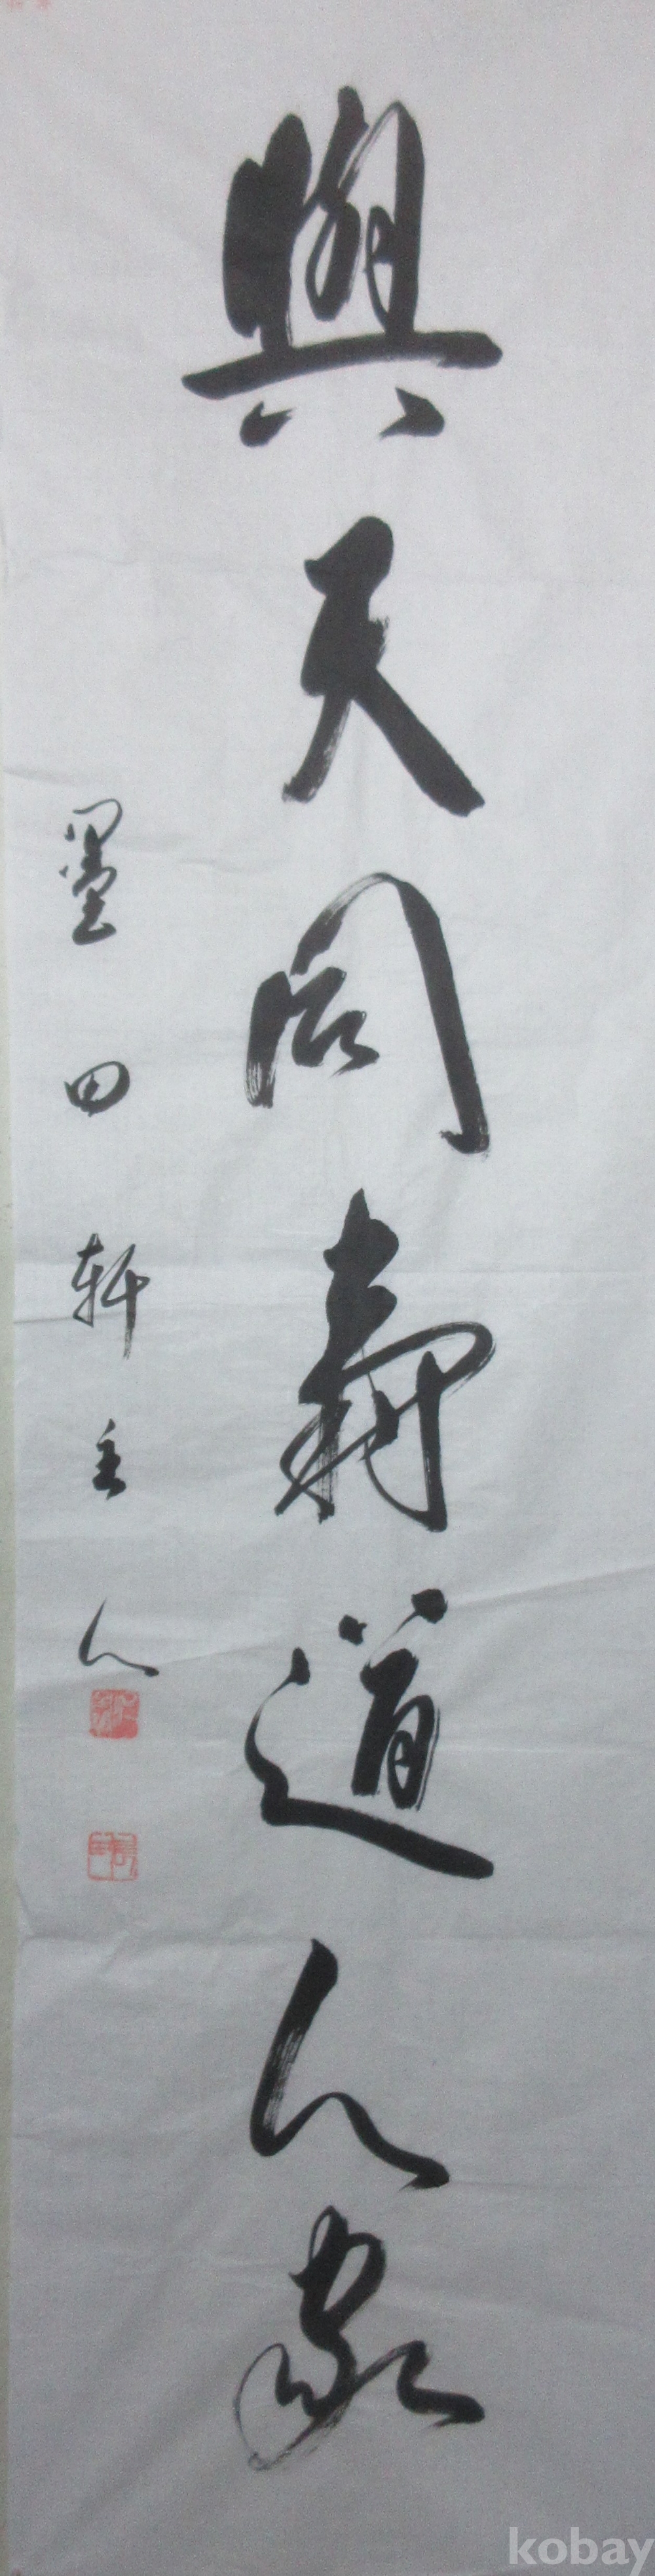 與天同壽道人家
墨田軒主人
kobay